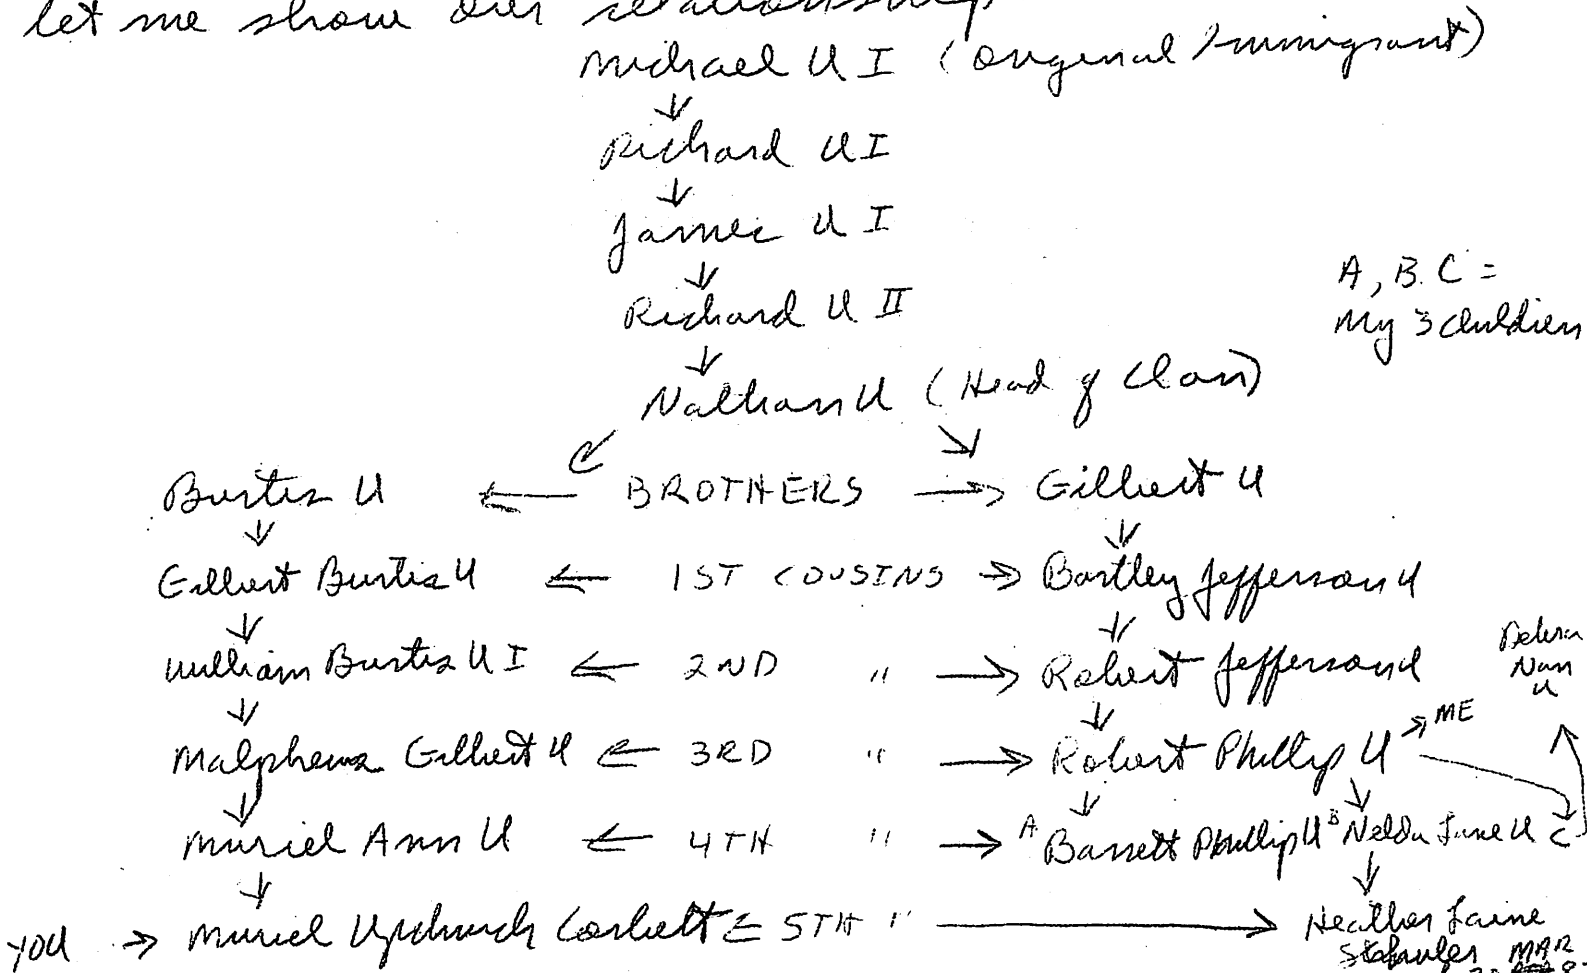 let me show our relationship
Michael U I (Original Immigrant)
Richard U I
James U I
Richard U II
A, B. C =
My 3 children
Nathan U (Head of Clan)
Burtis U ← BROTHERS → Gilbert U
Gilbert Burtis U ← 1ST COUSINS → Bartley Jefferson U
William Burtis U I ← 2ND " → Robert Jefferson U
Nan
U
Malpheus Gilbert U ← 3RD " → Robert Phillip U → ME
Muriel Ann U ← 4TH " → A Barrett Phillip U B Nelda June U C
YOU → Muriel Upchurch Corbett ← 5TH " → Heather
MAR